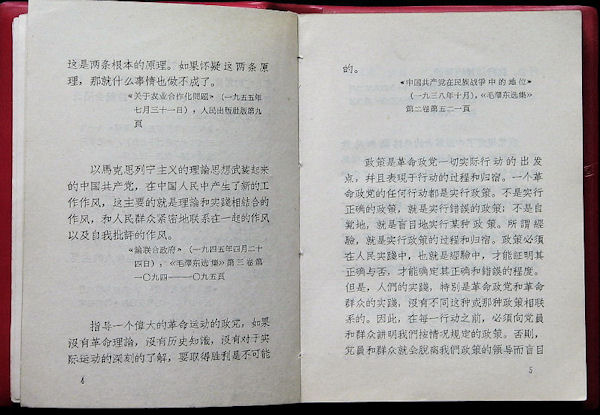 这是两条根本的原理。如果怀疑这两条原
理，那就什么事情也做不成了。
《关于农业合作化問題》（一九五五年
七月三十一日），人民出版社版第九
頁
以馬克思列宁主义的理論思想武装起来
的中国共产党，在中国人民中产生了新的工
作作风，这主要的就是理論和实践相結合的
作风，和人民群众紧密地联系在一起的作风
以及自我批評的作风。
《論联合政府》（一九四五年四月二十
四日），《毛澤东选集》第三卷第
一〇九四——一〇九五頁
指导一个偉大的革命运动的政党，如果
沒有革命理論，沒有历史知識，沒有对于实
际运动的深刻的了解，要取得胜利是不可能
4
的。
《中国共产党在民族战爭中的地位》
（一九三八年十月），《毛澤东选集》
第二卷第五二一頁
政策是革命政党一切实际行动的出发
点，并且表現于行动的过程和归宿。一个革
命政党的任何行动都是实行政策。不是实行
正确的政策，就是实行錯誤的政策；不是自
觉地，就是盲目地实行某种政策。所謂經
驗，就是实行政策的过程和归宿。政策必須
在人民实践中，也就是經驗中，才能証明其
正确与否，才能确定其正确和錯誤的程度。
但是，人們的实践，特別是革命政党和革命
群众的实践，沒有不同这种或那种政策相联
系的。因此，在每一行动之前，必須向党員
和群众講明我們按情况規定的政策。否則，
党員和群众就会脫离我們政策的領导而盲目
5